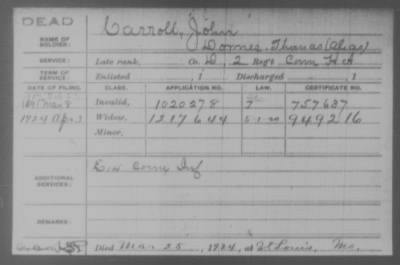 DEAD
NAME OF SOLDIER: Carroll, John
Downes, Thomas (Alias)
SERVICE: Late rank, Co. D, 2 Reg't Conn H A
TERM OF SERVICE: Enlisted , 1 Discharged , 1
DATE OF FILING. CLASS. APPLICATION NO. LAW. CERTIFICATE NO.
Mar 8 Invalid, 1020278 757637
1924 Apr 3 Widow, 1217644 5-1-20 949216
Minor,
ADDITIONAL SERVICES: Conn Inf
REMARKS:
Died Mar 25, 1924, at St Louis, Mo.